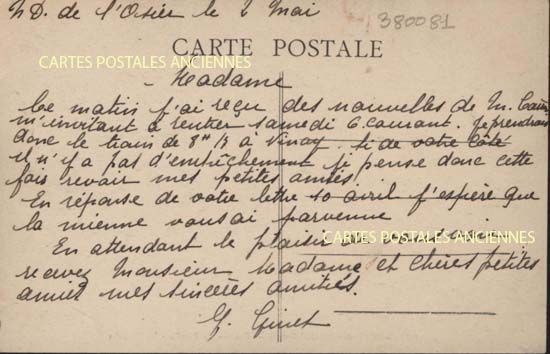 ND. de l'Osier le 2 Mai
380081
CARTE POSTALE
CARTES POSTALES ANCIENNES
Madame
Ce matin j'ai reçu des nouvelles de M.
m'invitant à rentrer samedi 6 courant. Je prendrais
donc le train de 8h à Vinay. Si de votre côté
il n'y a pas d'empêchement je pense donc cette
fois revoir mes petites amies
En réponse de votre lettre 10 avril j'espère que
la mienne vous ai parvenue
En attendant le plaisir de vous
CARTES POSTALES ANCIENNES
recevez Monsieur Madame et chères petites
amies mes sincères amitiés.
G. Ginet